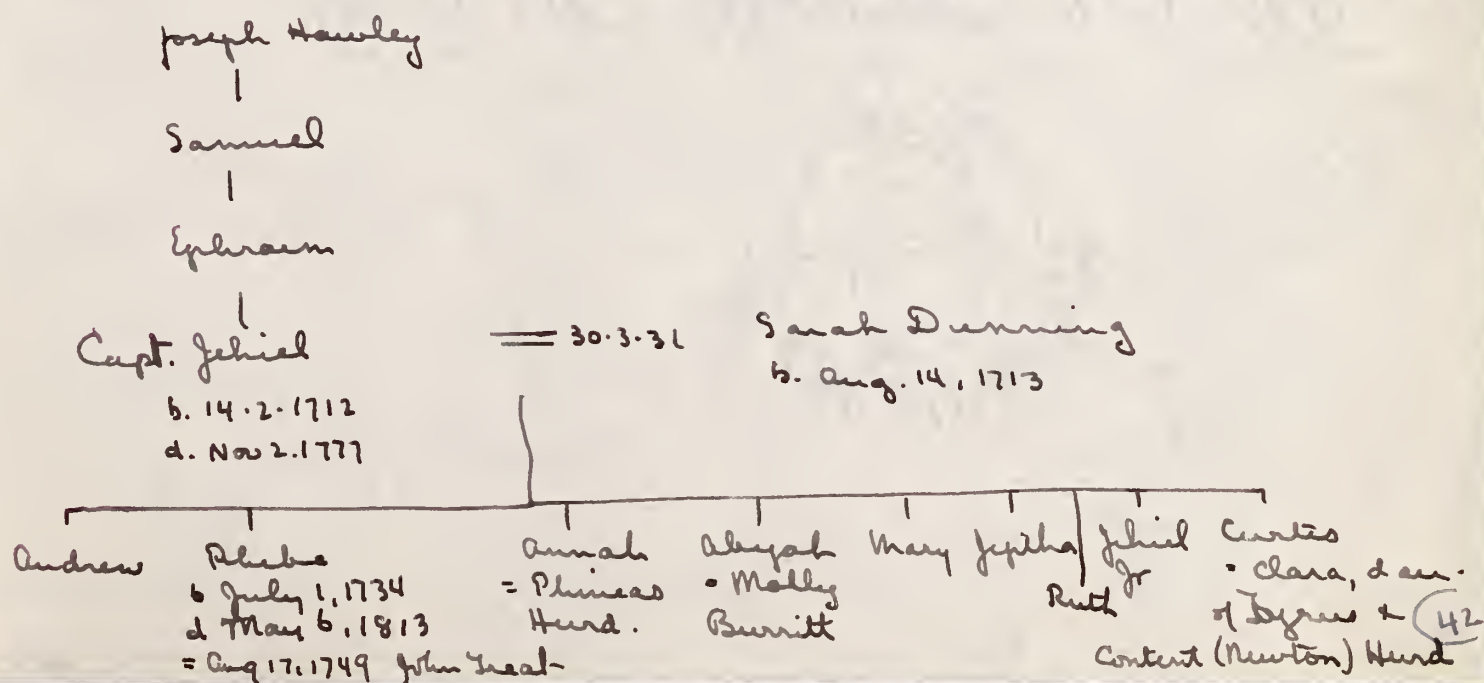 Joseph Hawley
Samuel
Ephraim
Capt. Jehiel
b. 14.2.1712
d. Nov 2.1777
= 30.3.31
Sarah Dunning
b. Aug. 14, 1713
Andrew
Phebe
b July 1, 1734
d May 6, 1813
= Aug 17, 1749 John Treat
Annah
= Phineas
Hurd.
Abijah
= Molly
Burritt
Mary
Jeptha
Ruth
Jehiel
Jr
Curtis
= Clara, dau.
of &
Content (Newton) Hurd
42